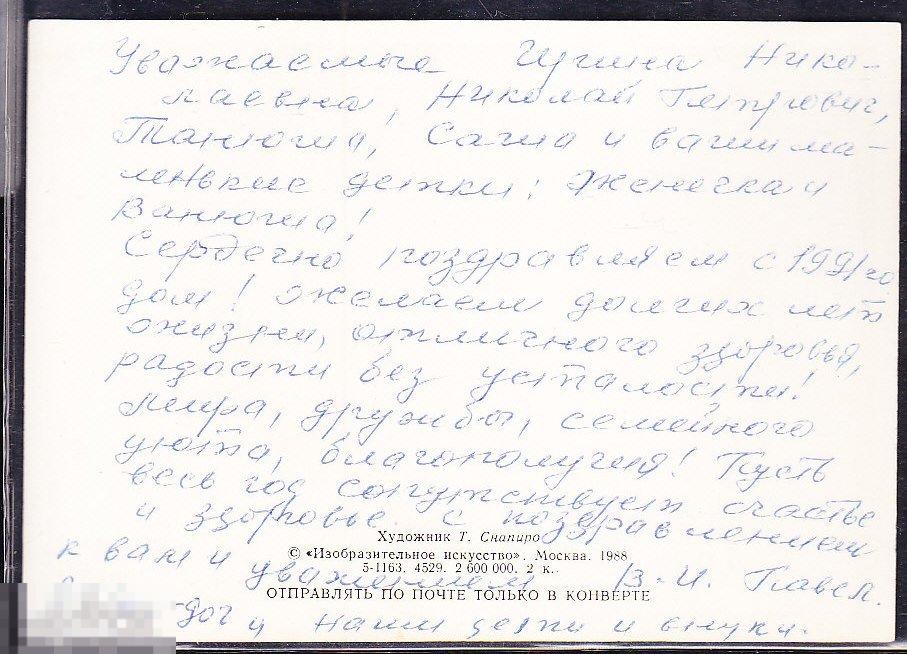 Уважаемые Ирина Нико-
лаевна, Николай Петрович,
Танюша, Саша и ваши ма-
ленькие детки: Женечка и
Ванюша!
Сердечно поздравляем с 1991 го
дом! Желаем долгих лет
жизни, отличного здоровья,
радости без усталости!
Мира, дружбы, семейного
уюта, благополучия! Пусть
весь год сопутствует счастье
и здоровье. С поздравлением
Художник Т. Снапиро
© «Изобразительное искусство». Москва. 1988
к вам и уважением В. И. Павел.
5-1163. 4529. 2 600 000. 2 к.
ОТПРАВЛЯТЬ ПО ПОЧТЕ ТОЛЬКО В КОНВЕРТЕ
и наши дети и внуки.